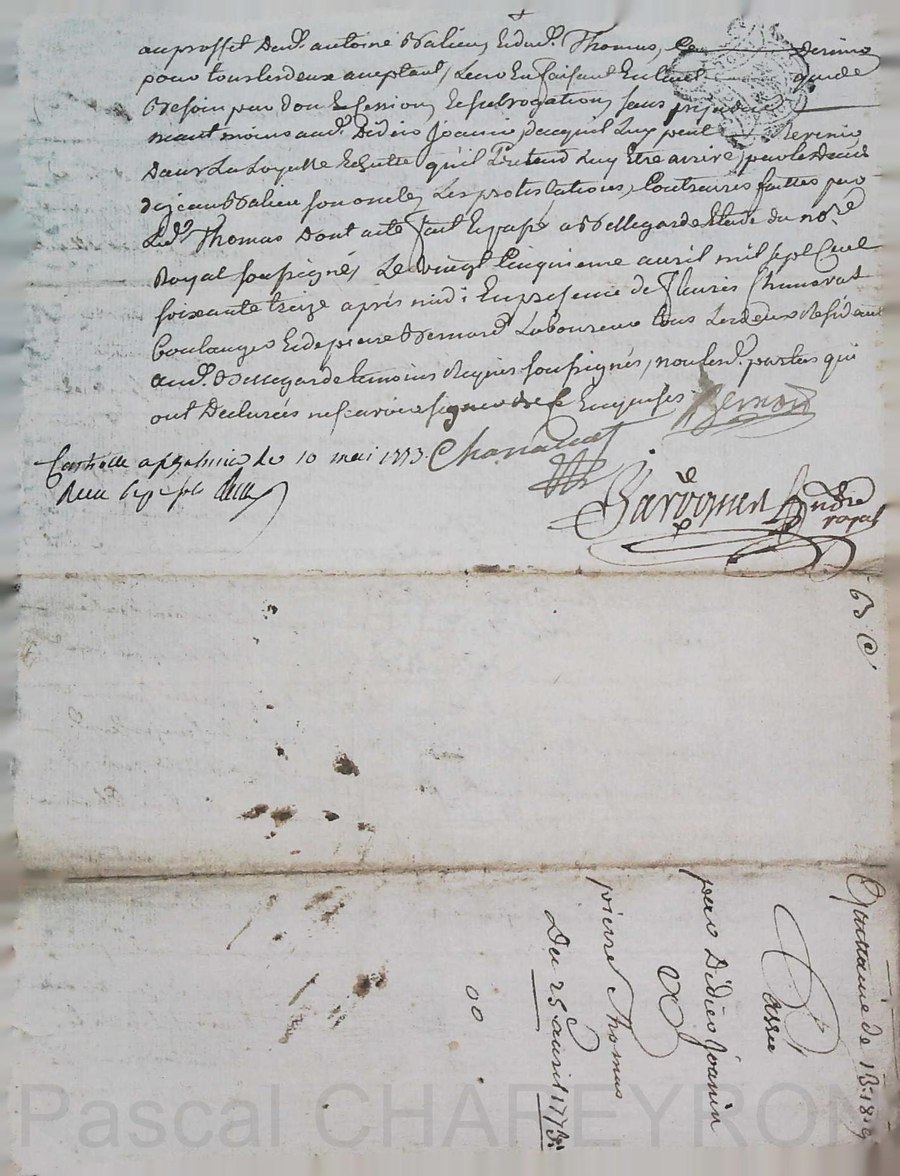 au proffit dud. antoine Valieu, Et dud. Thomas, ce
pour tous Les deux acceptant, Leur En faisant En tant que de
Besoin pur don Cession, Et subrogation, sans prejudice
neant moins aud. Didier Joanin
qu'il Pretend Luy Etre arrivé, par Le deces
de jean Valieu son oncle, Les protestations, Contraires faittes par
Led. Thomas Dont acte fait Et passé a Bellegarde Etude du no.re
Royal soussigné, Le vingt Cinquieme avril mil sept Cent
soixante treize après midi En presence de fleuris Chanavat
boulanger Et de pierre Bernard Laboureur tous Les deux Residant
aud. Bellegarde temoins Requis soussignés, non Les d. parties qui
ont Declarées ne scavoir signer de ce Enquises
Bernard
Chanavat
Controllé a le 10 mai 1773
Reçu sept
Jardonnet
no.re
royal
63
quittance de 18: 18 s
Passée
par Didier Joanin
a
pierre Thomas
Du 25 avril 1773
Pascal CHAREYRON